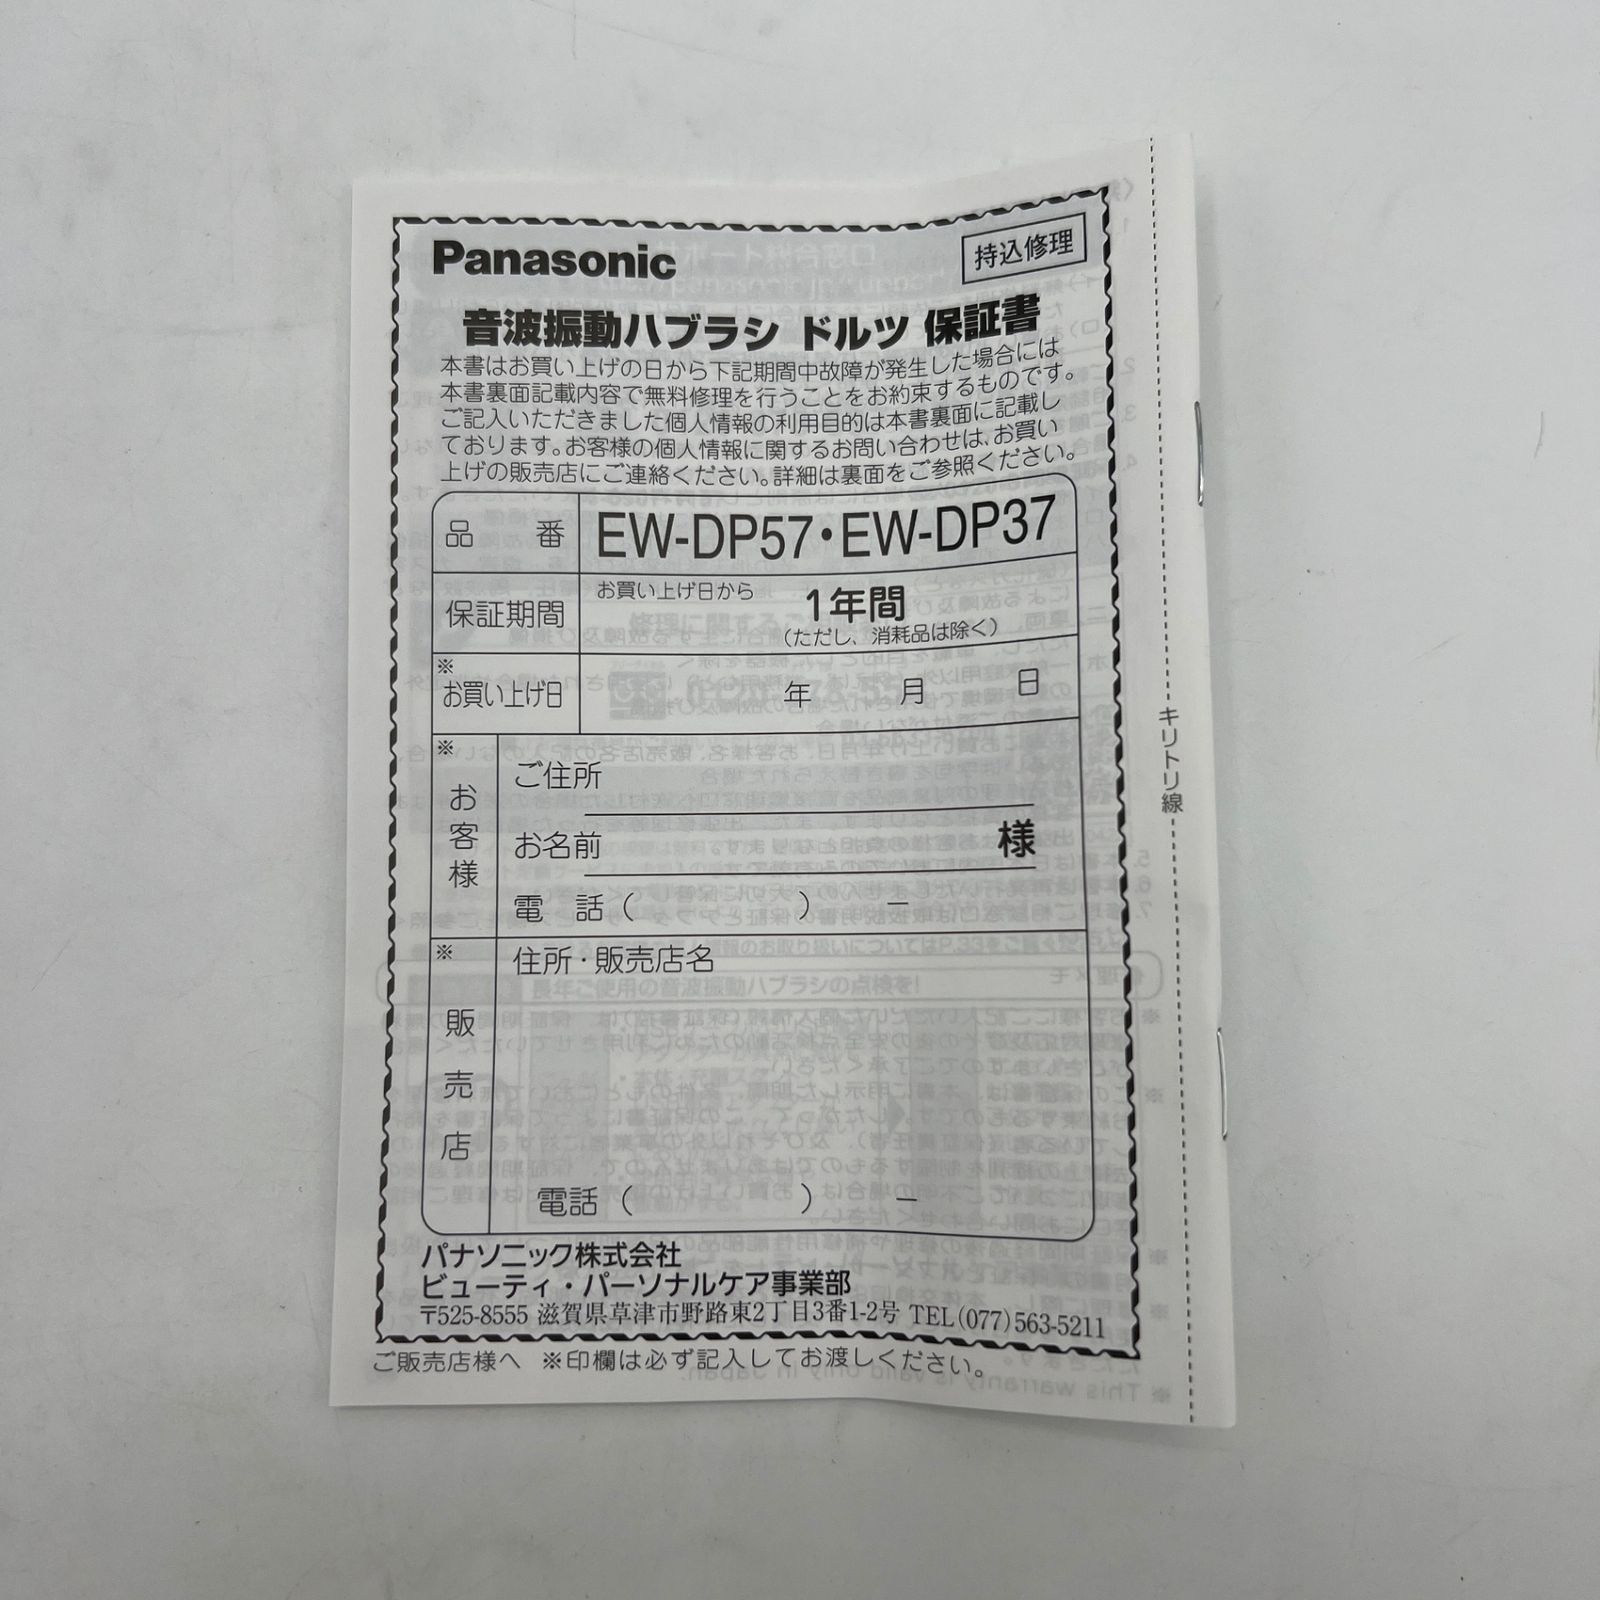 Panasonic
持込修理
音波振動ハブラシ ドルツ 保証書
本書はお買い上げの日から下記期間中故障が発生した場合には
本書裏面記載内容で無料修理を行うことをお約束するものです。
ご記入いただきました個人情報の利用目的は本書裏面に記載し
ております。お客様の個人情報に関するお問い合わせは、お買い
上げの販売店にご連絡ください。詳細は裏面をご参照ください。
品番 EW-DP57・EW-DP37
保証期間 お買い上げ日から 1年間
(ただし、消耗品は除く)
※
お買い上げ日 年 月 日
※
お客様
ご住所
お名前 様
電話( ) −
※
販売店
住所・販売店名
電話( ) −
パナソニック株式会社
ビューティ・パーソナルケア事業部
〒525-8555 滋賀県草津市野路東2丁目3番1-2号 TEL(077)563-5211
ご販売店様へ ※印欄は必ず記入してお渡しください。
キリトリ線